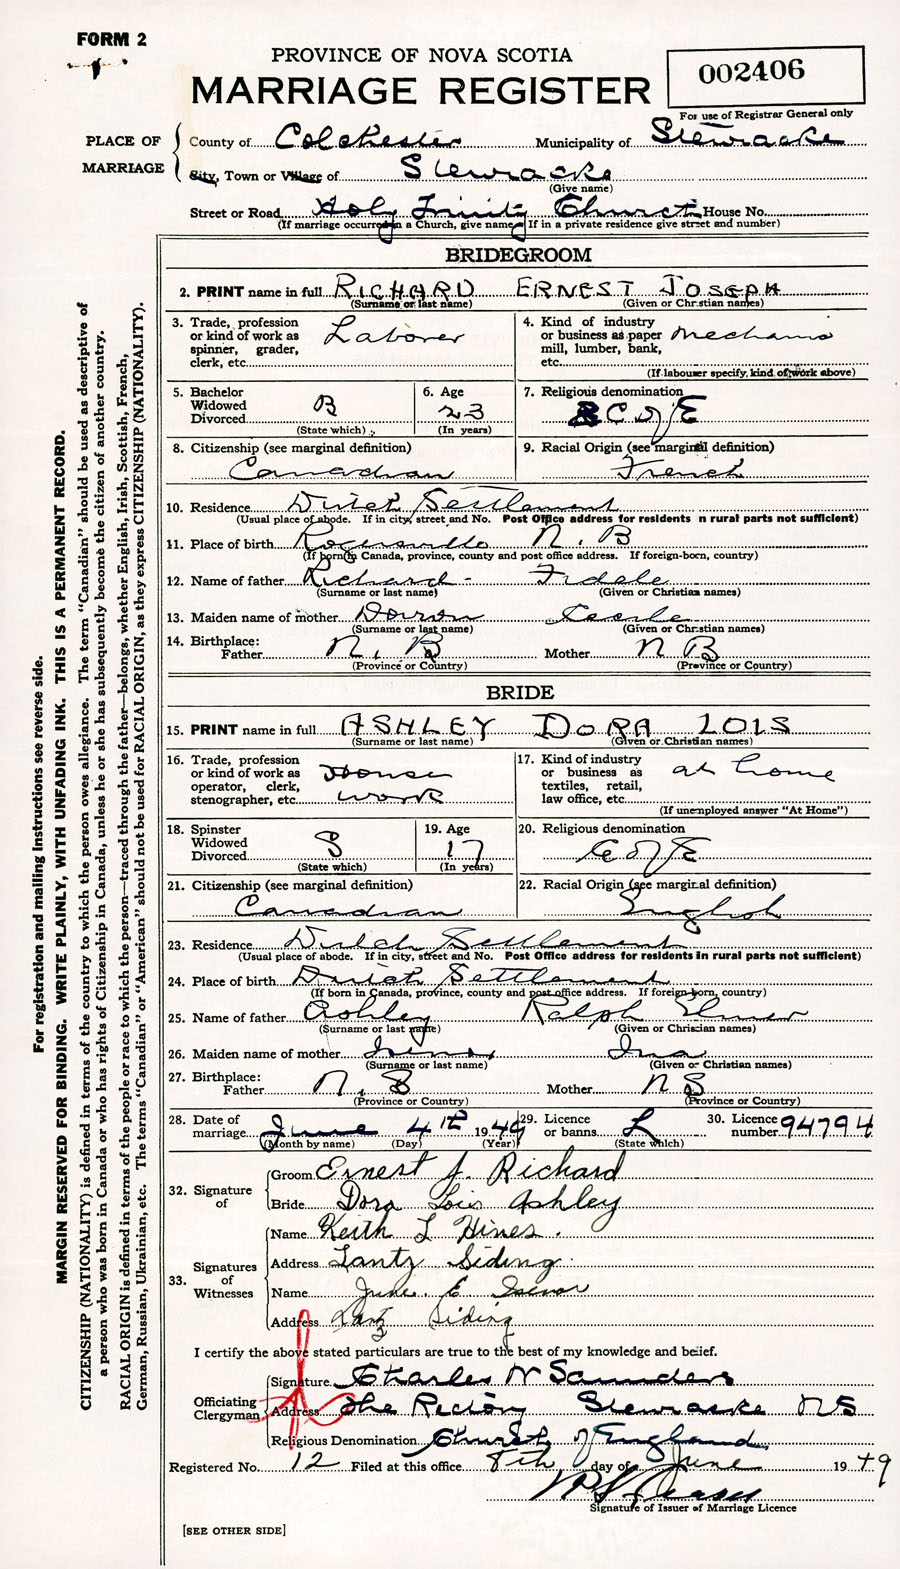 FORM 2
PROVINCE OF NOVA SCOTIA
MARRIAGE REGISTER
002406
For use of Registrar General only
PLACE OF MARRIAGE
County of Colchester Municipality of Stewiacke
City, Town or Village of Stewiacke
(Give name)
Street or Road Holy Trinity Church House No.
(If marriage occurred in a Church, give name. If in a private residence give street and number)
BRIDEGROOM
2. PRINT name in full RICHARD ERNEST JOSEPH
(Surname or last name) (Given or Christian names)
3. Trade, profession or kind of work as spinner, grader, clerk, etc. Laborer
4. Kind of industry or business as paper mill, lumber, bank, etc. Mechanic
(If labourer specify, kind of work above)
5. Bachelor Widowed Divorced B
(State which)
6. Age 23
(In years)
7. Religious denomination C of E
8. Citizenship (see marginal definition) Canadian
9. Racial Origin (see marginal definition) French
10. Residence Dutch Settlement
(Usual place of abode. If in city, street and No. Post Office address for residents in rural parts not sufficient)
11. Place of birth Rogersville N. B
(If born in Canada, province, county and post office address. If foreign-born, country)
12. Name of father Richard - Fidele
(Surname or last name) (Given or Christian names)
13. Maiden name of mother Doiron
(Surname or last name) (Given or Christian names)
14. Birthplace: Father N. B Mother N B
(Province or Country) (Province or Country)
BRIDE
15. PRINT name in full ASHLEY DORA LOIS
(Surname or last name) (Given or Christian names)
16. Trade, profession or kind of work as operator, clerk, stenographer, etc. House work
17. Kind of industry or business as textiles, retail, law office, etc. at home
(If unemployed answer "At Home")
18. Spinster Widowed Divorced S
(State which)
19. Age 17
(In years)
20. Religious denomination C of E
21. Citizenship (see marginal definition) Canadian
22. Racial Origin (see marginal definition) English
23. Residence Dutch Settlement
(Usual place of abode. If in city, street and No. Post Office address for residents in rural parts not sufficient)
24. Place of birth Dutch Settlement
(If born in Canada, province, county and post office address. If foreign-born, country)
25. Name of father Ashley Ralph Elmer
(Surname or last name) (Given or Christian names)
26. Maiden name of mother Ina
(Surname or last name) (Given or Christian names)
27. Birthplace: Father N. S Mother N S
(Province or Country) (Province or Country)
28. Date of marriage June 4th 1949
(Month by name) (Day) (Year)
29. Licence or banns L
(State which)
30. Licence number 94794
32. Signature of
Groom Ernest J. Richard
Bride Dora Lois Ashley
33. Signatures of Witnesses
Name Keith L Hines.
Address Lantz Siding
Name June E
Address Lantz Siding
I certify the above stated particulars are true to the best of my knowledge and belief.
Officiating Clergyman
Signature Charles W Saunders
Address The Rectory Stewiacke NS
Religious Denomination Church of England
Registered No. 12 Filed at this office 8th day of June 1949
Signature of Issuer of Marriage Licence
[SEE OTHER SIDE]
For registration and mailing instructions see reverse side.
MARGIN RESERVED FOR BINDING. WRITE PLAINLY, WITH UNFADING INK. THIS IS A PERMANENT RECORD.
CITIZENSHIP (NATIONALITY) is defined in terms of the country to which the person owes allegiance. The term "Canadian" should be used as descriptive of
a person who was born in Canada or who has rights of Citizenship in Canada, unless he or she has subsequently become the citizen of another country.
RACIAL ORIGIN is defined in terms of the people or race to which the person—traced through the father—belongs, whether English, Irish, Scottish, French,
German, Russian, Ukrainian, etc. The terms "Canadian" or "American" should not be used for RACIAL ORIGIN, as they express CITIZENSHIP (NATIONALITY).